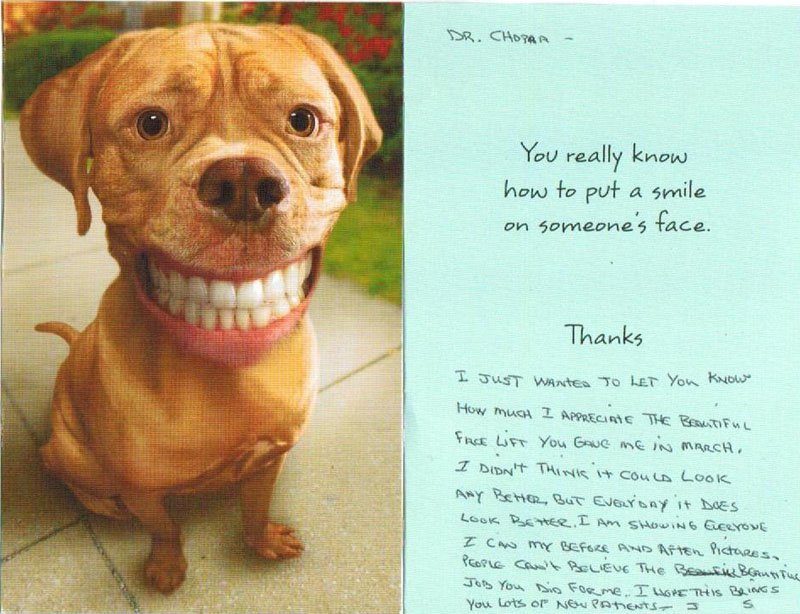 DR. CHOPRA -
You really know
how to put a smile
on someone's face.
Thanks
I JUST WANTED TO LET YOU KNOW
HOW MUCH I APPRECIATE THE BEAUTIFUL
FACE LIFT YOU GAVE ME IN MARCH.
I DIDN'T THINK IT COULD LOOK
ANY BETTER, BUT EVERYDAY IT DOES
LOOK BETTER. I AM SHOWING EVERYONE
I CAN MY BEFORE AND AFTER PICTURES.
PEOPLE CAN'T BELIEVE THE BEAUTIFUL
JOB YOU DID FOR ME. I HOPE THIS BRINGS
YOU LOTS OF NEW PATIENTS - J S